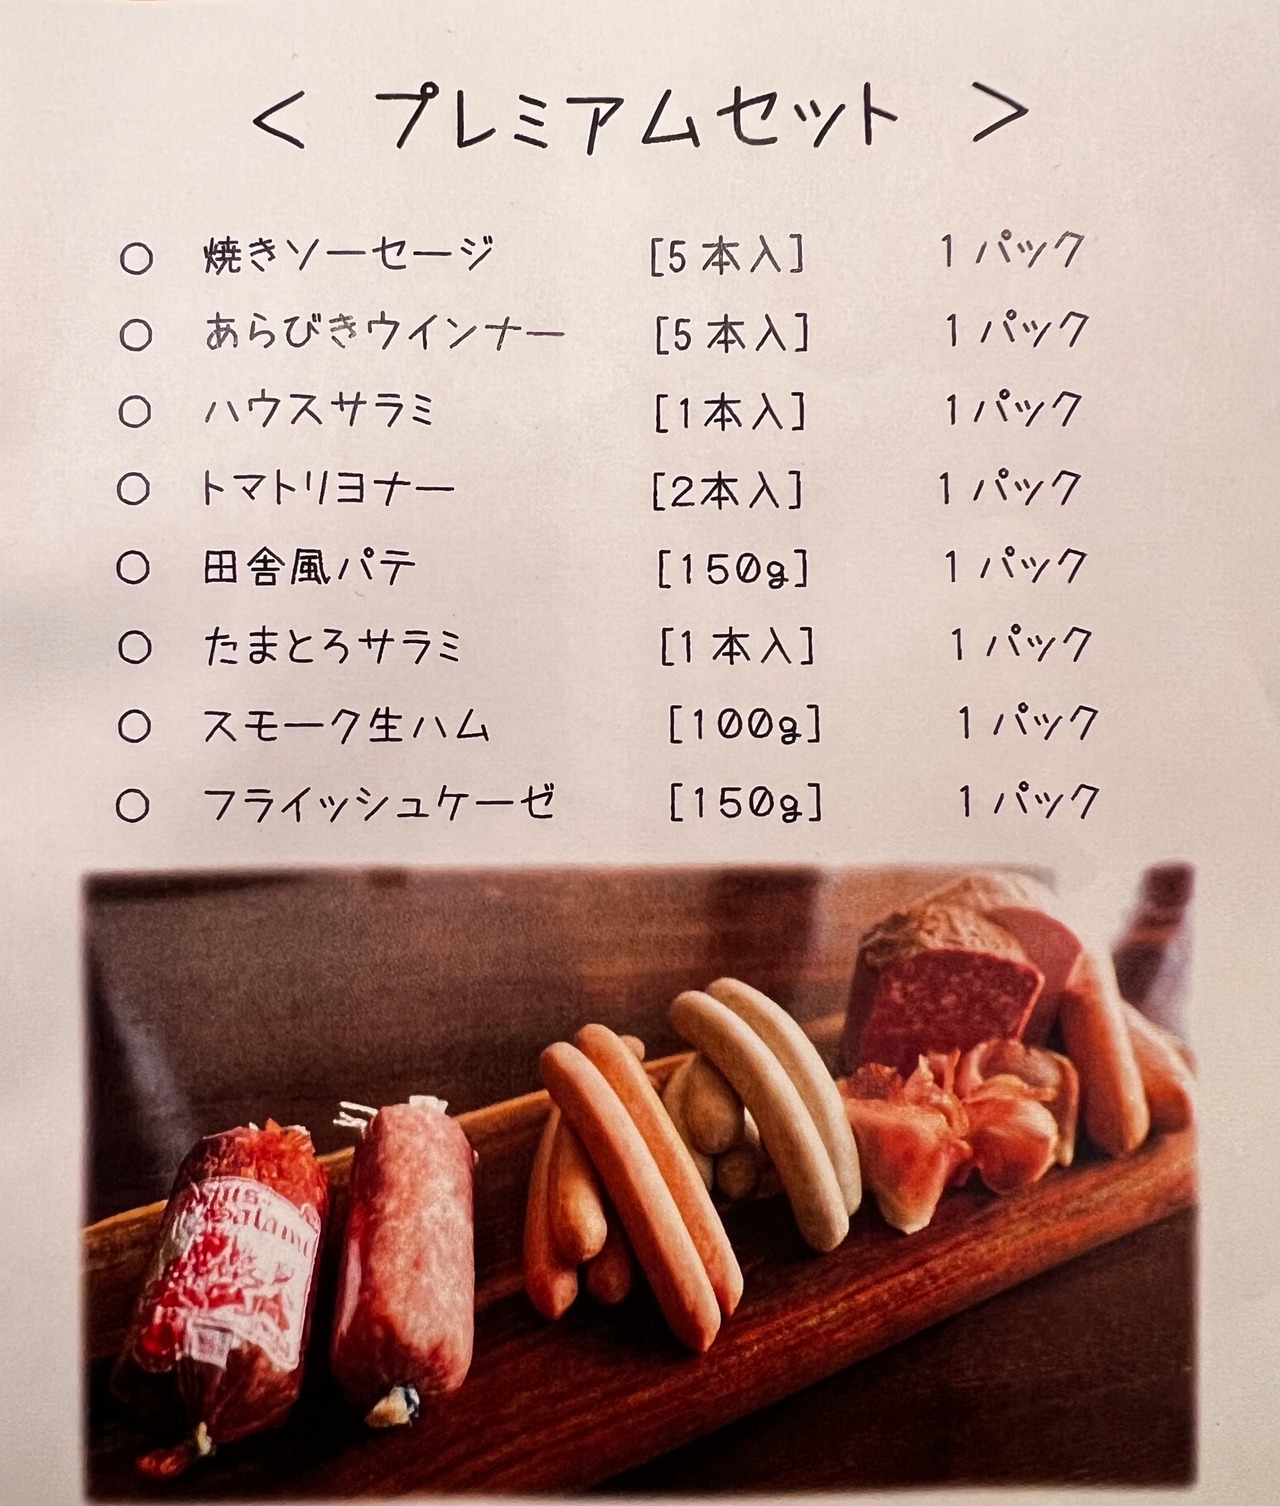 < プレミアムセット >
○ 焼きソーセージ [5本入] 1パック
○ あらびきウインナー [5本入] 1パック
○ ハウスサラミ [1本入] 1パック
○ トマトリヨナー [2本入] 1パック
○ 田舎風パテ [150g] 1パック
○ たまとろサラミ [1本入] 1パック
○ スモーク生ハム [100g] 1パック
○ フライッシュケーゼ [150g] 1パック